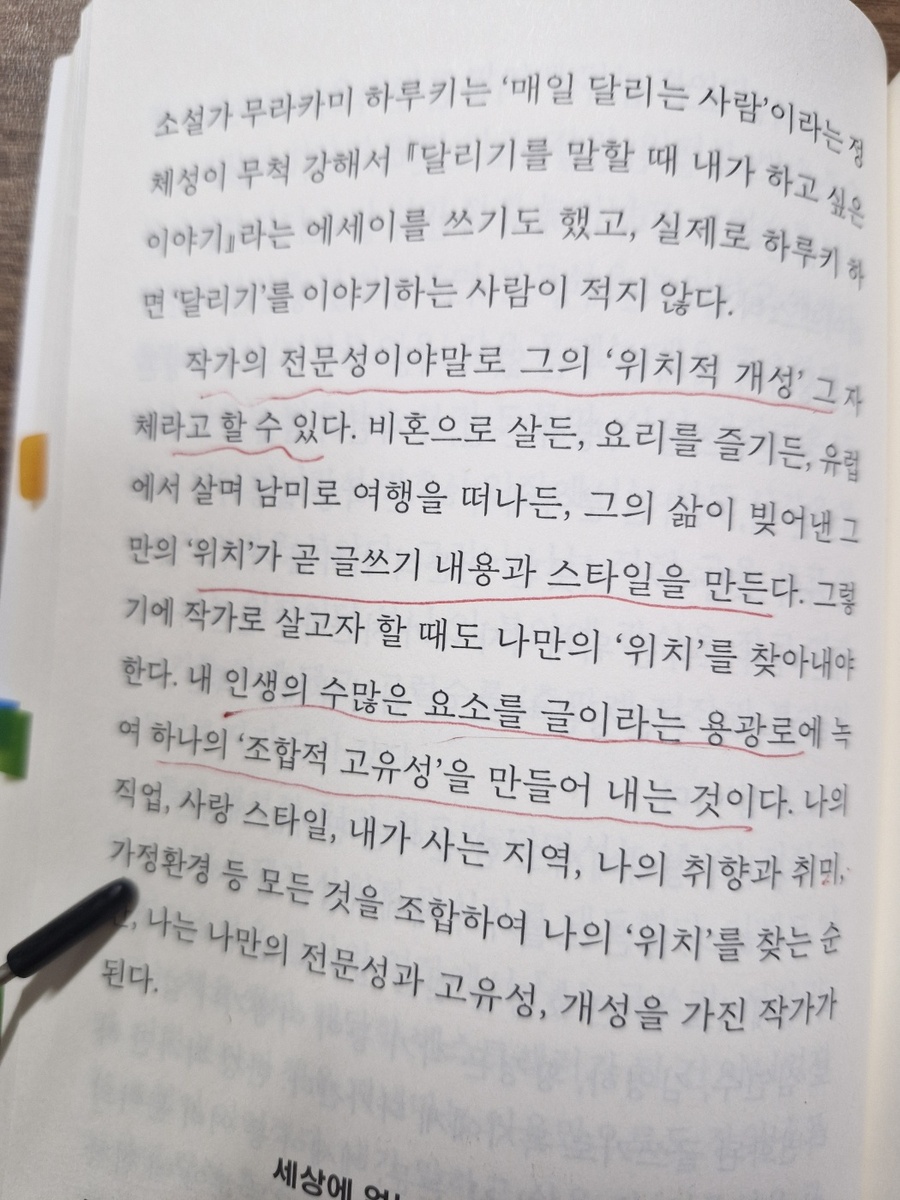 소설가 무라카미 하루키는 ‘매일 달리는 사람’이라는 정
체성이 무척 강해서 『달리기를 말할 때 내가 하고 싶은
이야기』라는 에세이를 쓰기도 했고, 실제로 하루키 하
면 ‘달리기’를 이야기하는 사람이 적지 않다.
작가의 전문성이야말로 그의 ‘위치적 개성’ 그 자
체라고 할 수 있다. 비혼으로 살든, 요리를 즐기든, 유럽
에서 살며 남미로 여행을 떠나든, 그의 삶이 빚어낸 그
만의 ‘위치’가 곧 글쓰기 내용과 스타일을 만든다. 그렇
기에 작가로 살고자 할 때도 나만의 ‘위치’를 찾아내야
한다. 내 인생의 수많은 요소를 글이라는 용광로에 녹
여 하나의 ‘조합적 고유성’을 만들어 내는 것이다. 나의
직업, 사랑 스타일, 내가 사는 지역, 나의 취향과 취미,
가정환경 등 모든 것을 조합하여 나의 ‘위치’를 찾는 순
나는 나만의 전문성과 고유성, 개성을 가진 작가가
된다.
세상에